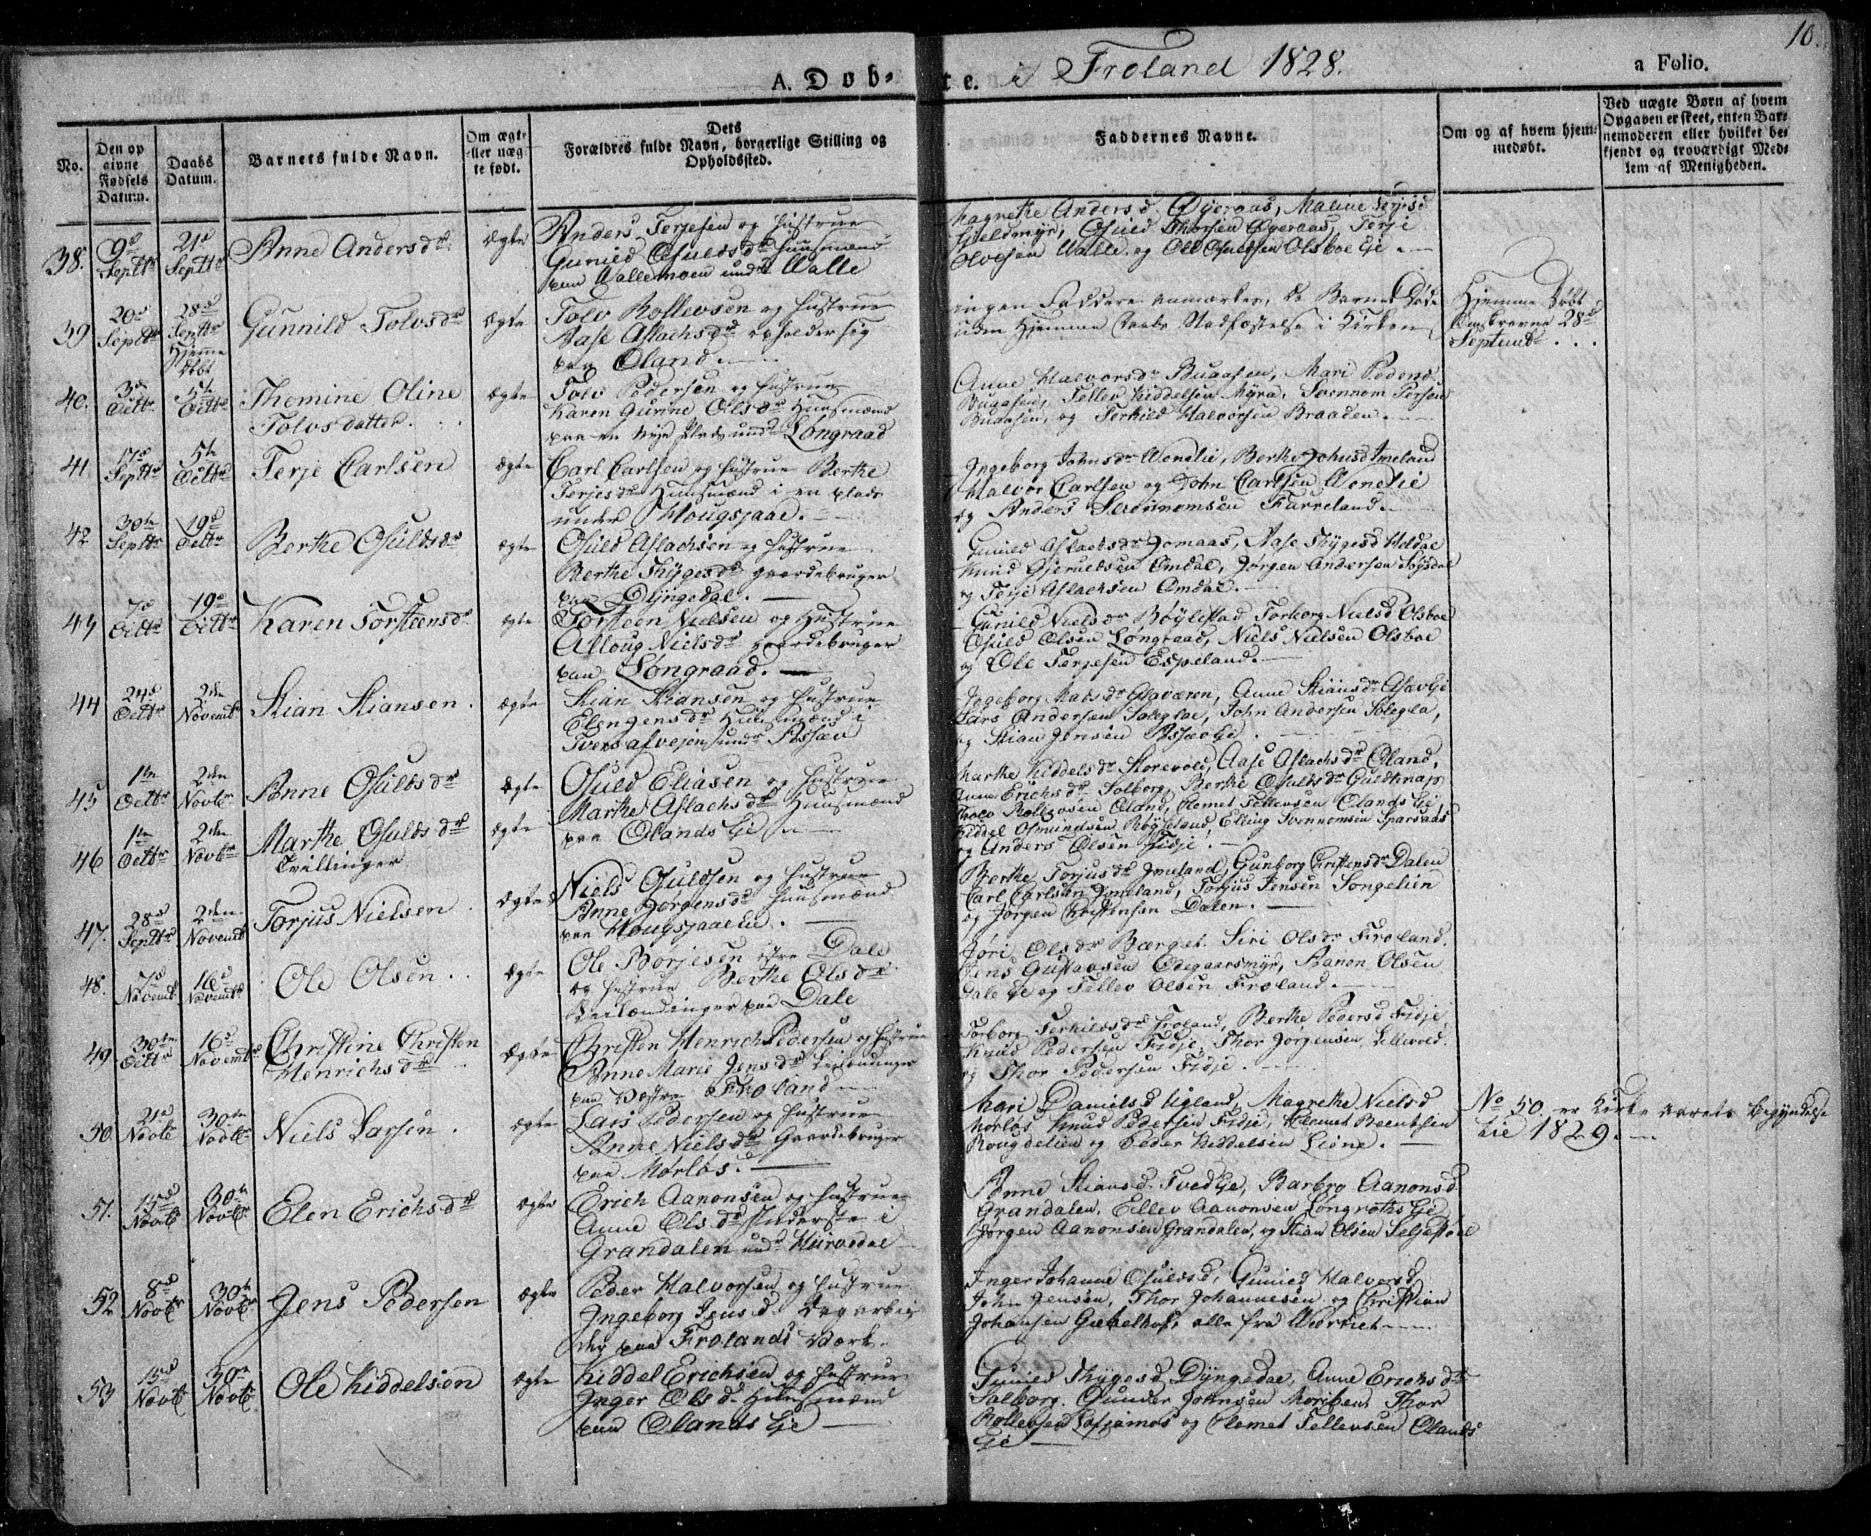 10.
A. Døb-te. i Froland 1828.
a Folio.
No.
Den op
givne
Fødsels
Datum.
Daabs
Datum.
Barnets fulde Navn.
Om ægte
eller uæg
te født.
Dets
Forældres fulde Navn, borgerlige Stilling og
Opholdssted.
Faddernes Navne.
Om og af hvem hjem-
medøbt.
Ved uægte Børn af hvem
Opgaven er skeet, enten Bar-
nemoderen eller hvilket be-
kjendt og troværdigt Med-
lem af Menigheden.
38. 9d Septbr 21d Septbr Anne Andersdr ægte
Anders Terjesen og Hustrue
Gunild Osulds dr Huusmænd
paa Wallemoen under Walle
Magrethe Andersd Øyeraas, Malene Terjesd
Hieldmyr, Osuld Thorsen Øyeraas, Terje
Olvesen Walle og Ole Osuldsen Olsboe Eje
39 20d Septbr 28d Septbr Hjemme døbt Gunnild Tolvsdr ægte
Tolv Rollevsen og Hustrue
Aase Aslachsdr opholder sig
paa Øland
ingen Faddere anmærkes, da Barnet døde
uden Hjemme daabs Stadfæstelse i Kirken
Hjemme døbt
28d
Septembr
40. 3d Octbr 5te Octbr Thomine Oline
Tolvsdatter ægte
Tolv Pedersen og Hustrue
Karen Gurine Olsdr Huusmænd
paa en nye Plads undr Løngraad
Anne Halvorsdr Buaasen, Mari Pedersd
Buaasen, Tellev Kiddelsen Myra, Svennom Torsen
Buaasen, og Terkild Halvorsen Braaden.
41. 17d Septbr 5te Octbr Terje Carlsen ægte
Carl Carlsen og Hustrue Berthe
Terjesdr Huusmænd i en Plads
under Hougsjaae.
Ingeborg Johnsdr Wenelie, Berthe Johnsd Imeland
Halvor Carlsen og John Carlsen Wenelie
og Anders Svennomsen Furreland.
42 30te Septbr 19d Octbr Berthe Osuldsdr ægte
Osuld Aslachsen og Hustrue
Berthe Thygesdr Gaardebruger
paa Dyngedal.
Gunild Aslachsdr Jomaas, Aase Thygesd Heldal
Knud Gjerulfsen Omdal, Jørgen Andersen
og Terje Aslachsen Omdal.
43 7d Octbr 19d Octbr Karen Torsteensdr ægte
Torsteen Nielsen og Hustrue
Alloug Nielsdr Gaardebruger
paa Løngraad.
Gunild Nielsdr Bøylestad, Torborg Nielsd Olsboe
Osuld Olsen Løngraad, Niels Nielsen Olsboe
og Ole Terjesen Espeland.
44 24d Octbr 2den Novembr Stian Stiansen. ægte
Stian Stiansen og Hustrue
Huusmænd i
under Assæv
Ingeborg Matsdr, Anne Stiansdr
Lars Andersen, John Andersen
og Stian Jensen
45 1ste Octbr 2den Novbr Anne Osuldsdr ægte
Osuld Eliasen og Hustrue
Marthe Aslachsdr Huusmænd
paa Ølands Eje
Marthe Kiddelsdr, Aase Aslachsdr Øland,
Anne Erichsdr Salborg, Berthe Osuldsdr Guldknap
Tolv Rollevsen Øland, Clemet Tellevsen Ølands Eje
Kiddel Osmundsen Bøyleland, Elling Svennomsen Sparsaas
og Anders Olsen Fidje.
46 1ste Octbr 2den Novbr Marthe Osuldsdr
Tvillinger ægte
47. 28d Septbr 2den Novembr Torjus Nielsen ægte
Niels Osuldsen og Hustrue
Anne Jørgensdr Huusmænd
paa Hougsjaaelie.
Berthe Torjusdr Imeland, Gunborg Christensdr Dalen
Carl Carlsen Imeland, Torjus Jensen Songelien
og Jørgen Christensen Dalen.
48. 7d Novembr 16d Novembr Ole Olsen. ægte
Ole Børjesen Dale
og Hustrue Berthe Olsdr
Leilændinger paa Dale
Jøri Olsdr Bærget, Siri Olsdr Froland.
Jens Gustavsen Ødegaarsmyr, Aanon Olsen
Dale Eje og Tellev Olsen Froland.
49 30te Octbr 16d Novembr Christine Christen
Henrichsdr ægte
Christen Henrich Pedersen og Hustrue
Anne Marie Jensdr Leilændinger
paa Vestre Froland
Torborg Terkildsdr Froland, Berthe Pedersd Fidje,
Knud Pedersen Fidje, Thor Jørgensen Lillevold,
og Thor Pedersen Fidje.
50. 21d Novbr 30te Novbr Niels Larsen. ægte
Lars Pedersen og Hustrue
Anne Nielsdr Gaardebruger
paa Mørløs.
Mari Danielsd Ugland, Magrethe Nielsd
Mørløs Knud Pedersen Fidje, Clemet Beentsen
Rougdelien og Peder Kiddelsen Liene.
No 50. er Kirke aarets begyndelse
til 1829.
51. 15d Novbr 30te Novbr Elen Erichsdr ægte
Erich Aanonsen og Hustrue
Anne Olsdr Inderste i
Grandalen undr Hurvedal
Anne Stiansd Tvedt Eje, Barbro Aanonsd
Grandalen, Tellev Aanonsen Longrots Eje
Jørgen Aanonsen Grandalen, og Stian Olsen
52 8d Novbr 30te Novbr Jens Pedersen ægte
Peder Halvorsen og Hustrue
Ingeborg Jensd. arbei
der paa Frolands Værk.
Inger Johanne Osuldsd, Gunild Halvorsd
John Jensen, Thor Johannesen og Christian
Johansen, alle fra Wærket
53 13d Novbr 30te Novbr Ole Kiddelsen ægte
Kiddel Erichsen og Hustrue
Inger Olsd. Huusmænd
paa Ølands Eje
Gunild Thygesd Dyngedal, Anne Erichsdr
Salborg, Gunder Johnsen, Thor
Rollevsen og Clemet Tellevsen Ølands
Eje